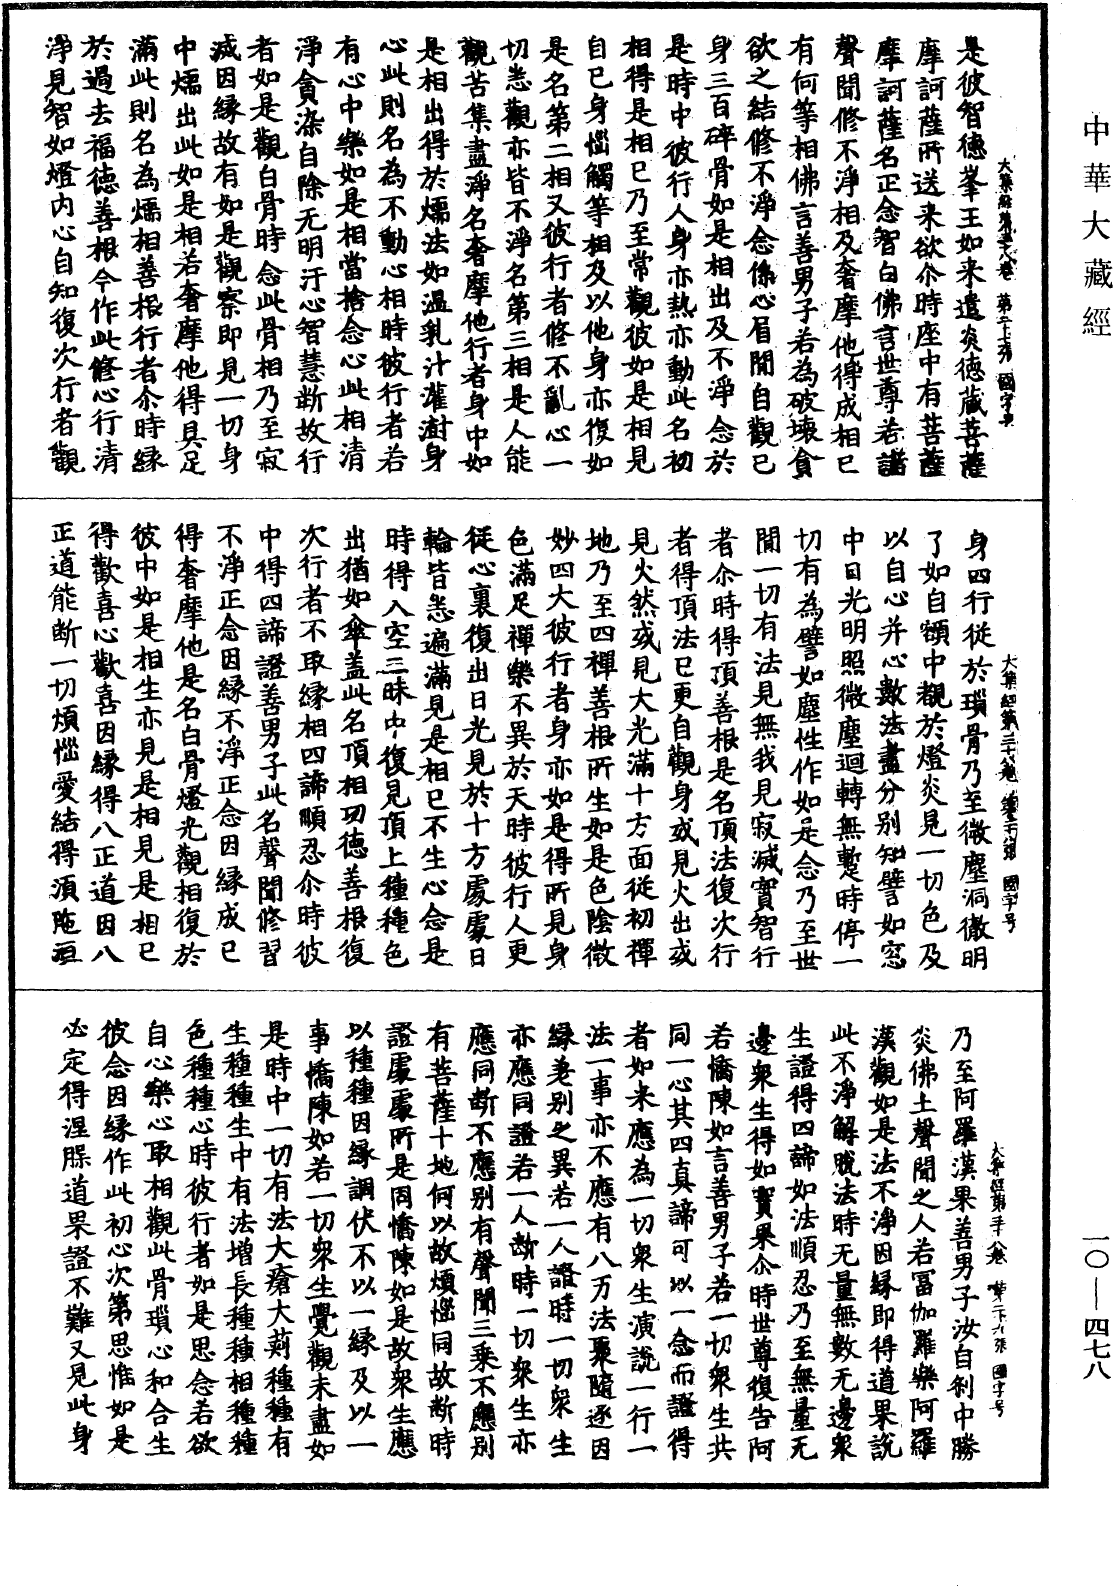 中華大藏經
一〇—四七八
大集經第三十八卷 第二十七張 國字號
是彼智德峯王如來遣炎德藏菩薩
摩訶薩所送來欲尒時座中有菩薩
摩訶薩名正念智白佛言世尊若諸
聲聞修不淨相及奢摩他得成相已
有何等相佛言善男子若為破壞貪
欲之結修不淨念係心眉間自觀己
身三百碎骨如是相出及不淨念於
是時中彼行人身亦熱亦動此名初
相得是相已乃至常觀彼如是相見
自己身惱觸等相及以他身亦復如
是名第二相又彼行者修不亂心一
切悉觀亦皆不淨名第三相是人能
觀苦集盡淨名奢摩他行者身中如
是相出得於煗法如溫乳汁灌澍身
心此則名為不動心相時彼行者若
有心中樂如是相當捨念心此相清
淨貪染自除无明汙心智慧断故行
者如是觀白骨時念此骨相乃至寂
滅因緣故有如是觀察即見一切身
中煗出此如是相若奢摩他得具足
滿此則名為煗相善根行者尒時緣
於過去福德善根今作此修心行清
淨見智如燈內心自知復次行者觀
大集經第三十八卷 第二十八張 國字号
身四行従於瑣骨乃至微塵洞徹明
了如自額中觀於燈炎見一切色及
以自心并心數法盡分別知譬如窓
中日光明照微塵迴轉無暫時停一
切有為譬如塵性作如是念乃至世
間一切有法見無我見寂滅實智行
者尒時得頂善根是名頂法復次行
者得頂法已更自觀身或見火出或
見火然或見大光滿十方面從初禪
地乃至四禪善根所生如是色陰微
妙四大彼行者身亦如是得所見身
色滿足禪樂不異於天時彼行人更
従心裏復出日光見於十方處處日
輪皆悉遍滿見是相已不生心念是
時得入空三昧中復見頂上種種色
出猶如傘盖此名頂相功德善根復
次行者不取緣相四諦順忍尒時彼
中得四諦證善男子此名聲聞修習
不淨正念因緣不淨正念因緣成已
得奢摩他是名白骨燈光觀相復於
彼中如是相生亦見是相見是相已
得歡喜心歡喜因緣得八正道因八
正道能斷一切煩惱愛結得湏陁洹
大集經第三十八卷 第二十九張 國字号
乃至阿羅漢果善男子汝自刹中勝
炎佛土聲聞之人若冨伽羅樂阿羅
漢觀如是法不淨因緣即得道果說
此不淨解脫法時无量無數无邊衆
生證得四諦如法順忍乃至無量无
邊衆生得如實果尒時世尊復告阿
若憍陳如言善男子若一切衆生共
同一心其四真諦可以一念而證得
者如來應為一切衆生演說一行一
法一事亦不應有八万法聚隨逐因
緣差別之異若一人證時一切衆生
亦應同證若一人斷時一切衆生亦
應同斷不應別有聲聞三乘不應別
有菩薩十地何以故煩惱同故斷時
證處處所是同憍陳如是故衆生應
以種種因緣調伏不以一緣及以一
事憍陳如若一切衆生覺觀未盡如
是時中一切有法大瘡大莿種種有
生種種生中有法增長種種相種種
色種種心時彼行者如是思念若欲
自心樂心取相觀此骨瑣心和合生
彼念因緣作此初心次第思惟如是
必定得涅膝道果證不難又見此身